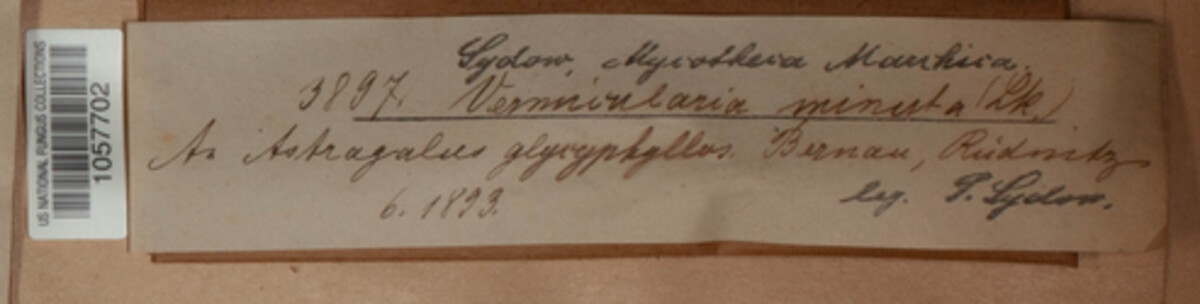 US NATIONAL FUNGUS COLLECTIONS
1057702
Sydow, Mycotheca Marchica.
3897. Vermicularia minuta (Lk.)
An Astragalus glycyphyllos. Bernau, Rüdnitz
6. 1893.
leg. P. Sydow.